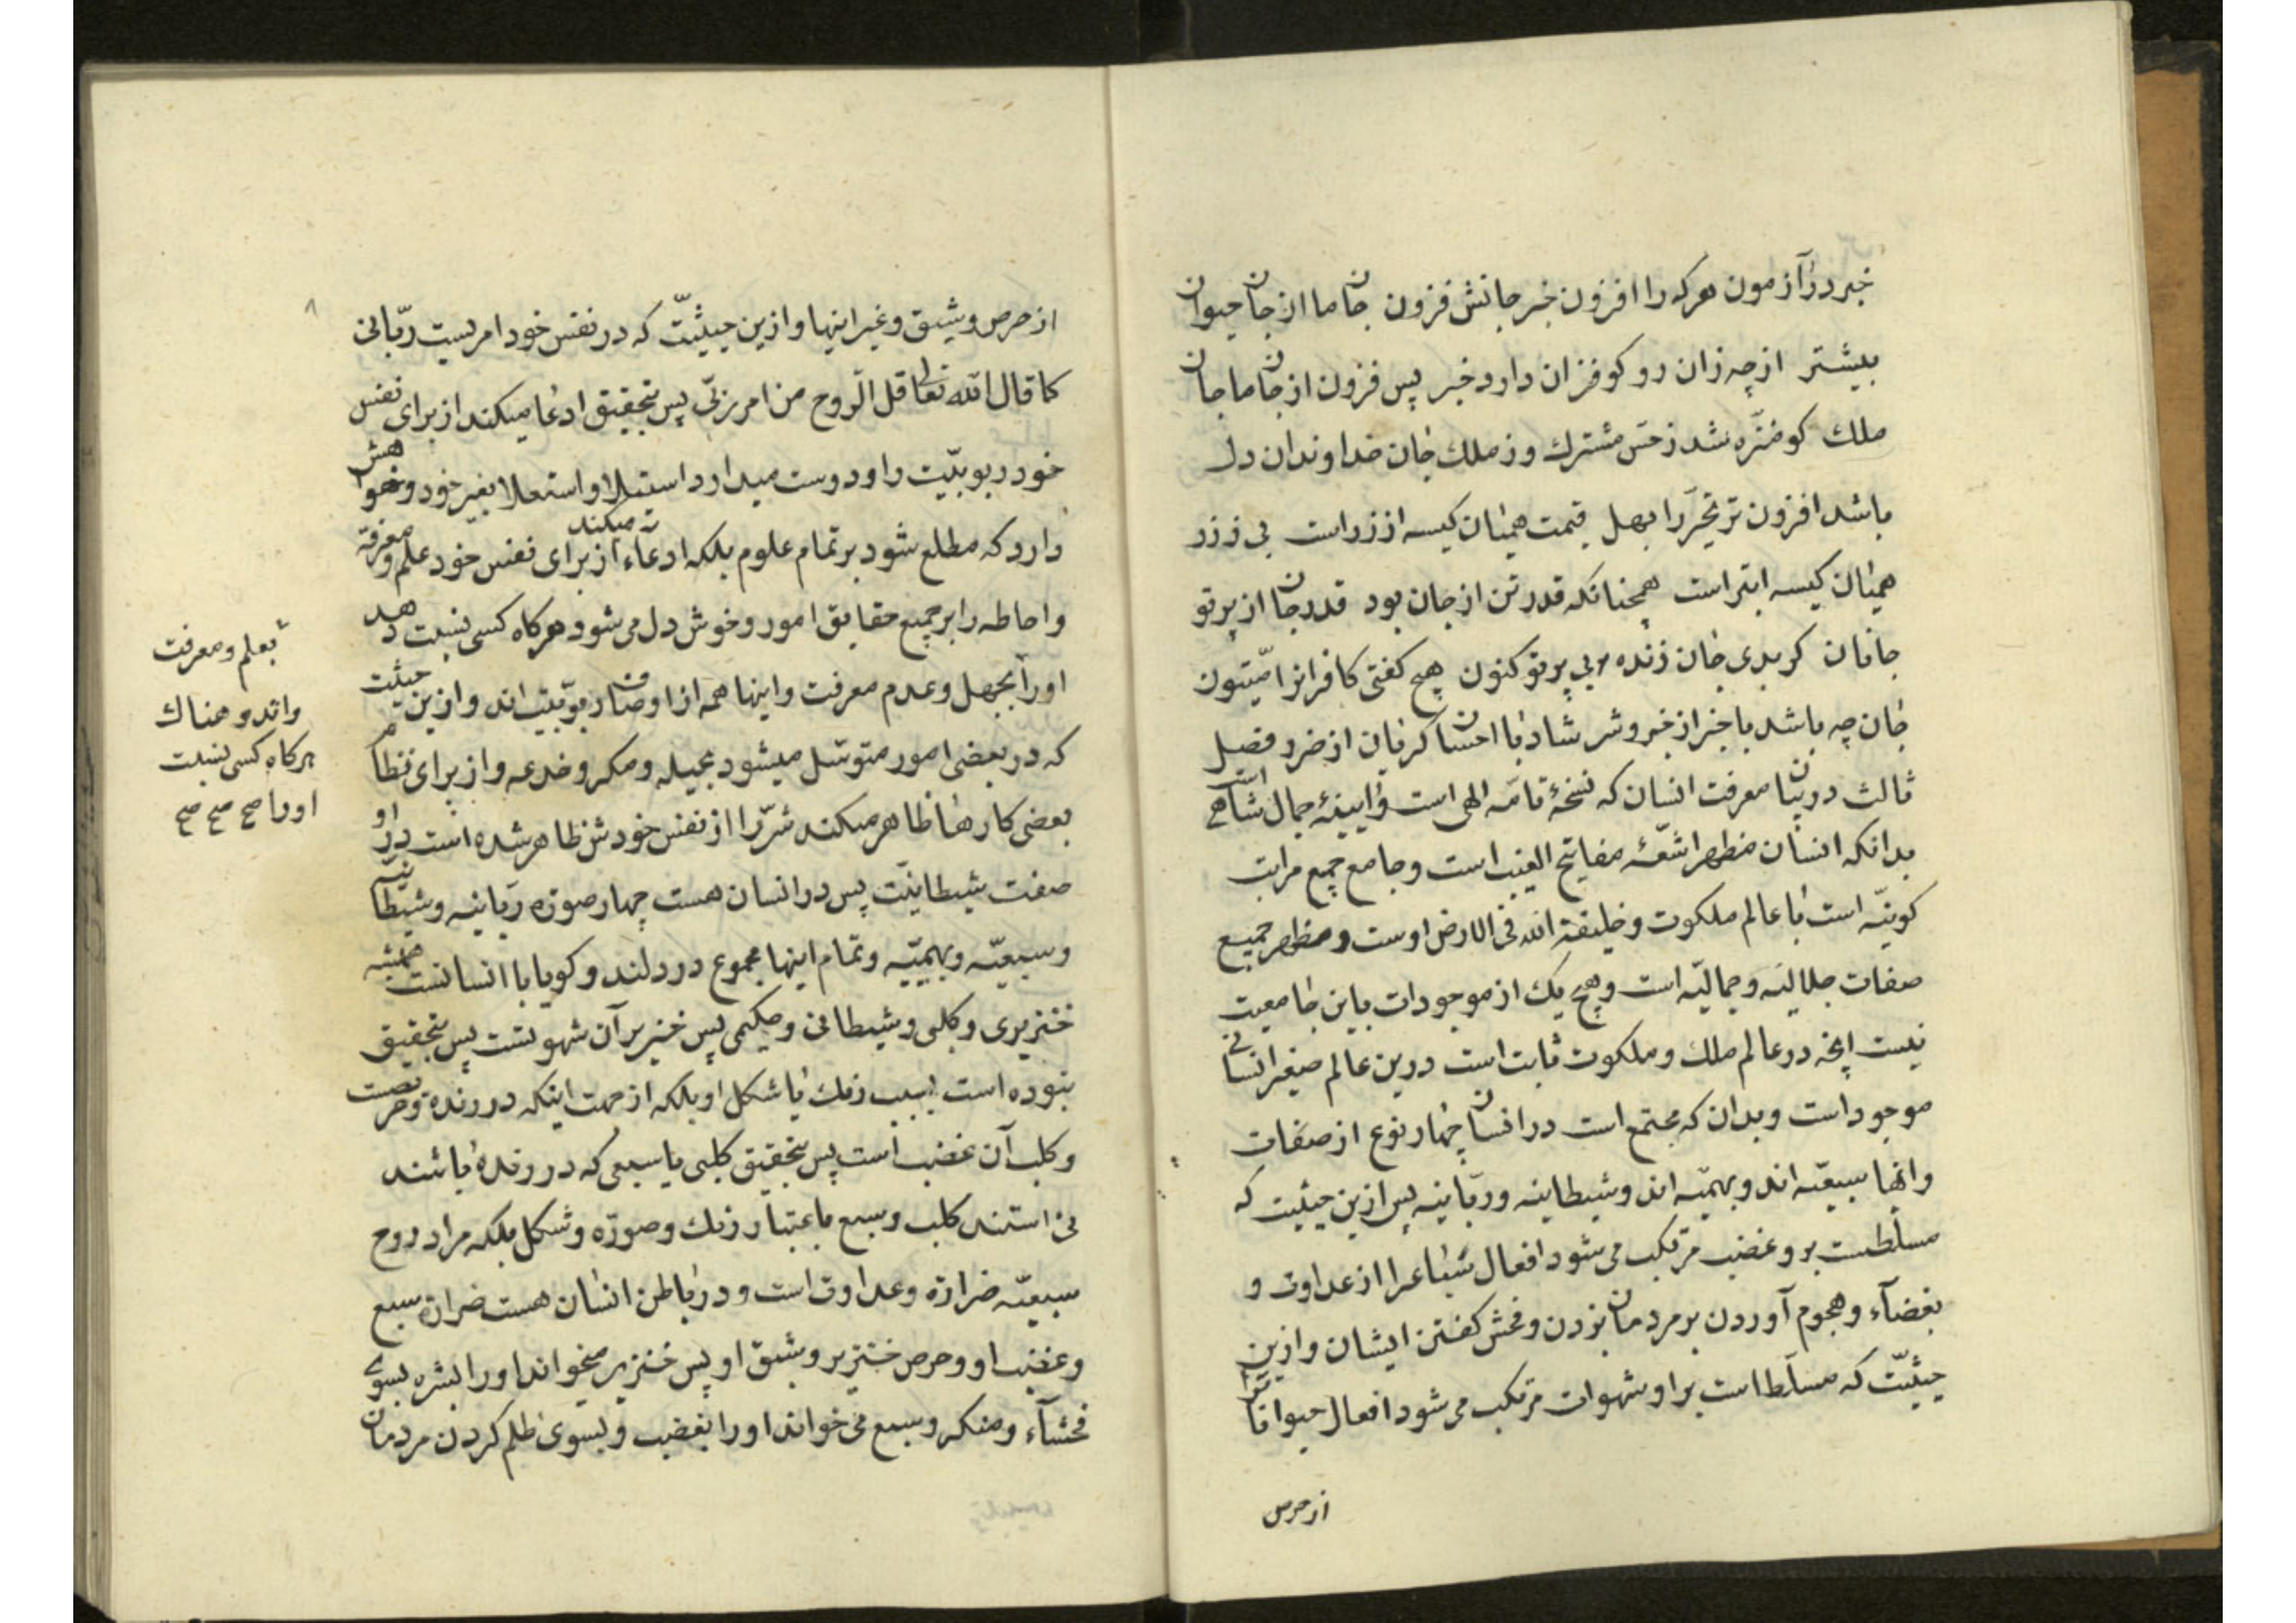 خبر در آزمون هرکه را افزون خبر جانش فزون جان ما از جان حیوان
بیشتر از چه زان رو کو فزان دارد خبر پس فزون از جان ما جان
ملك کو منزّه شد ز حس مشترك وز ملك جان خداوندان دل
باشد افزون تر تحیّر را بهل قیمت همیان کیسه از زر است بی ز زر
همیان کیسه ابتر است همچنانکه قدر تن از جان بود قدر جان از پرتو
جانان کر بدی جان زنده بی پرتو کنون هیچ کفتی کافرانرا میّتون
جان چه باشد با خبر از خیر و شر شاد با احسان کریان از ضرر فصل
ثالث در بیان معرفت انسان که نسخۀ تامّه الهی است و آیینۀ جمال شاهی است
بدانکه انسان مظهر اشعّۀ مفاتیح الغیب است و جامع جمیع مراتب
کونیّه است با عالم ملکوت و خلیفة الله فی الارض اوست و مظهر جمیع
صفات جلالیّه و جمالیّه است و هیچ یك از موجودات باین جامعیت
نیست انچه در عالم ملك و ملکوت ثابت است درین عالم صغیر انسانی
موجود است و بدان که مجتمع است در انسان چهار نوع از صفات
وانها سبعیّه اند و بهمیّه اند و شیطانیه و ربّانیه پس ازین حیثیت که
مسلّطست بر و غضب مرتکب می شود افعال سباع را از عداوت و
بغضآء و هجوم آوردن بر مردمان بزدن و فحش کفتن ایشان و ازین
حیثیّت که مسلّط است بر او شهوات مرتکب می شود افعال حیوانات را
از حرص
۸
از حرص و شبق و غیر اینها و ازین حیثیّت که در نفس خود امریست ربّانی
کما قال الله تعالی قل الرّوح من امر ربّی پس بتحقیق ادعا میکند از برای نفس
خود ربوبیّت را و دوست میدارد استیلا و استعلا بغیر خود و خواهش
دارد که مطلع شود بر تمام علوم بلکه ادعاء میکند از برای نفس خود علم و معرفة
و احاطه را بر جمیع حقایق امور و خوش دل می شود هرکاه کسی نسبت دهد
او را بجهل و عدم معرفت و اینها همه از اوصاف ربوبیّت اند و ازین حیثیت
که در بعضی امور متوسّل میشود بحیله و مکر و خدعه و از برای نظام
بعضی کارها ظاهر میکند شرّ را از نفس خودش ظاهر شده است در او
صفت شیطانیّت پس در انسان هست چهار صوره ربّانیه و شیطانیّه
و سبعیّه و بهیمیّه و تمام اینها مجموع در دلند و کویا با انسانست همیشه
خنزیری و کلبی و شیطانی و حکیمی پس خنزیر آن شهوتست پس بتحقیق
نبوده است بسبب رنك یا شکل او بلکه از جهت اینکه درنده و حرصت
و کلب آن غضب است پس بتحقیق کلبی یا سبعی که درنده باشند
نی استند کلب و سبع باعتبار رنك و صورّه و شکل بلکه مراد روح
سبعیّه ضراره و عداوت است و در باطن انسان هست ضراره سبع
و غضب او و حرص خنزیر و شبق او پس خنزیر میخواند او را بشره بسوی
فحشآء و منکر و سبع می خواند او را بغضب و بسوی ظلم کردن مردمان
بعلم و معرفت
واندوهناك
هرکاه کسی نسبت
اورا صح صح صح